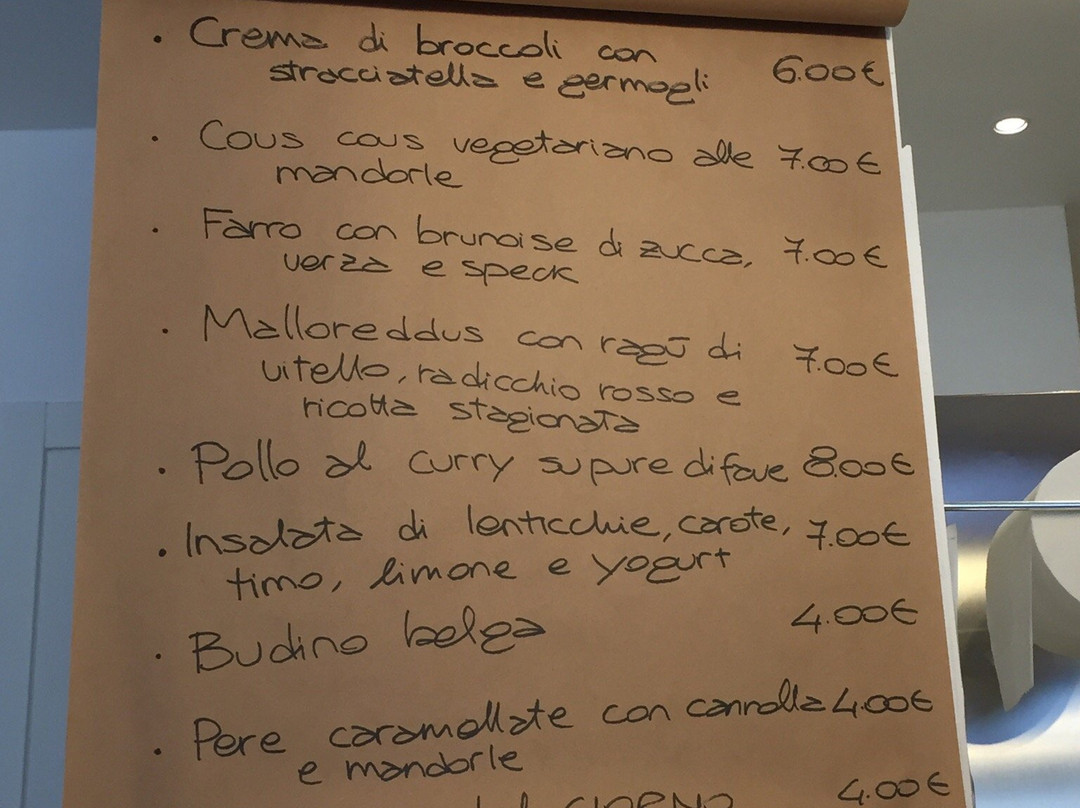 • Crema di broccoli con
stracciatella e germogli 6.00€
• Cous cous vegetariano alle 7.00€
mandorle
• Farro con brunoise di zucca, 7.00€
verza e speck
• Malloreddus con ragū di 7.00€
vitello, radicchio rosso e
ricotta stagionata
• Pollo al curry su pure di fave 8.00€
• Insalata di lenticchie, carote, 7.00€
timo, limone e yogurt
• Budino belga 4.00€
• Pere caramellate con cannella 4.00€
e mandorle
4.00€